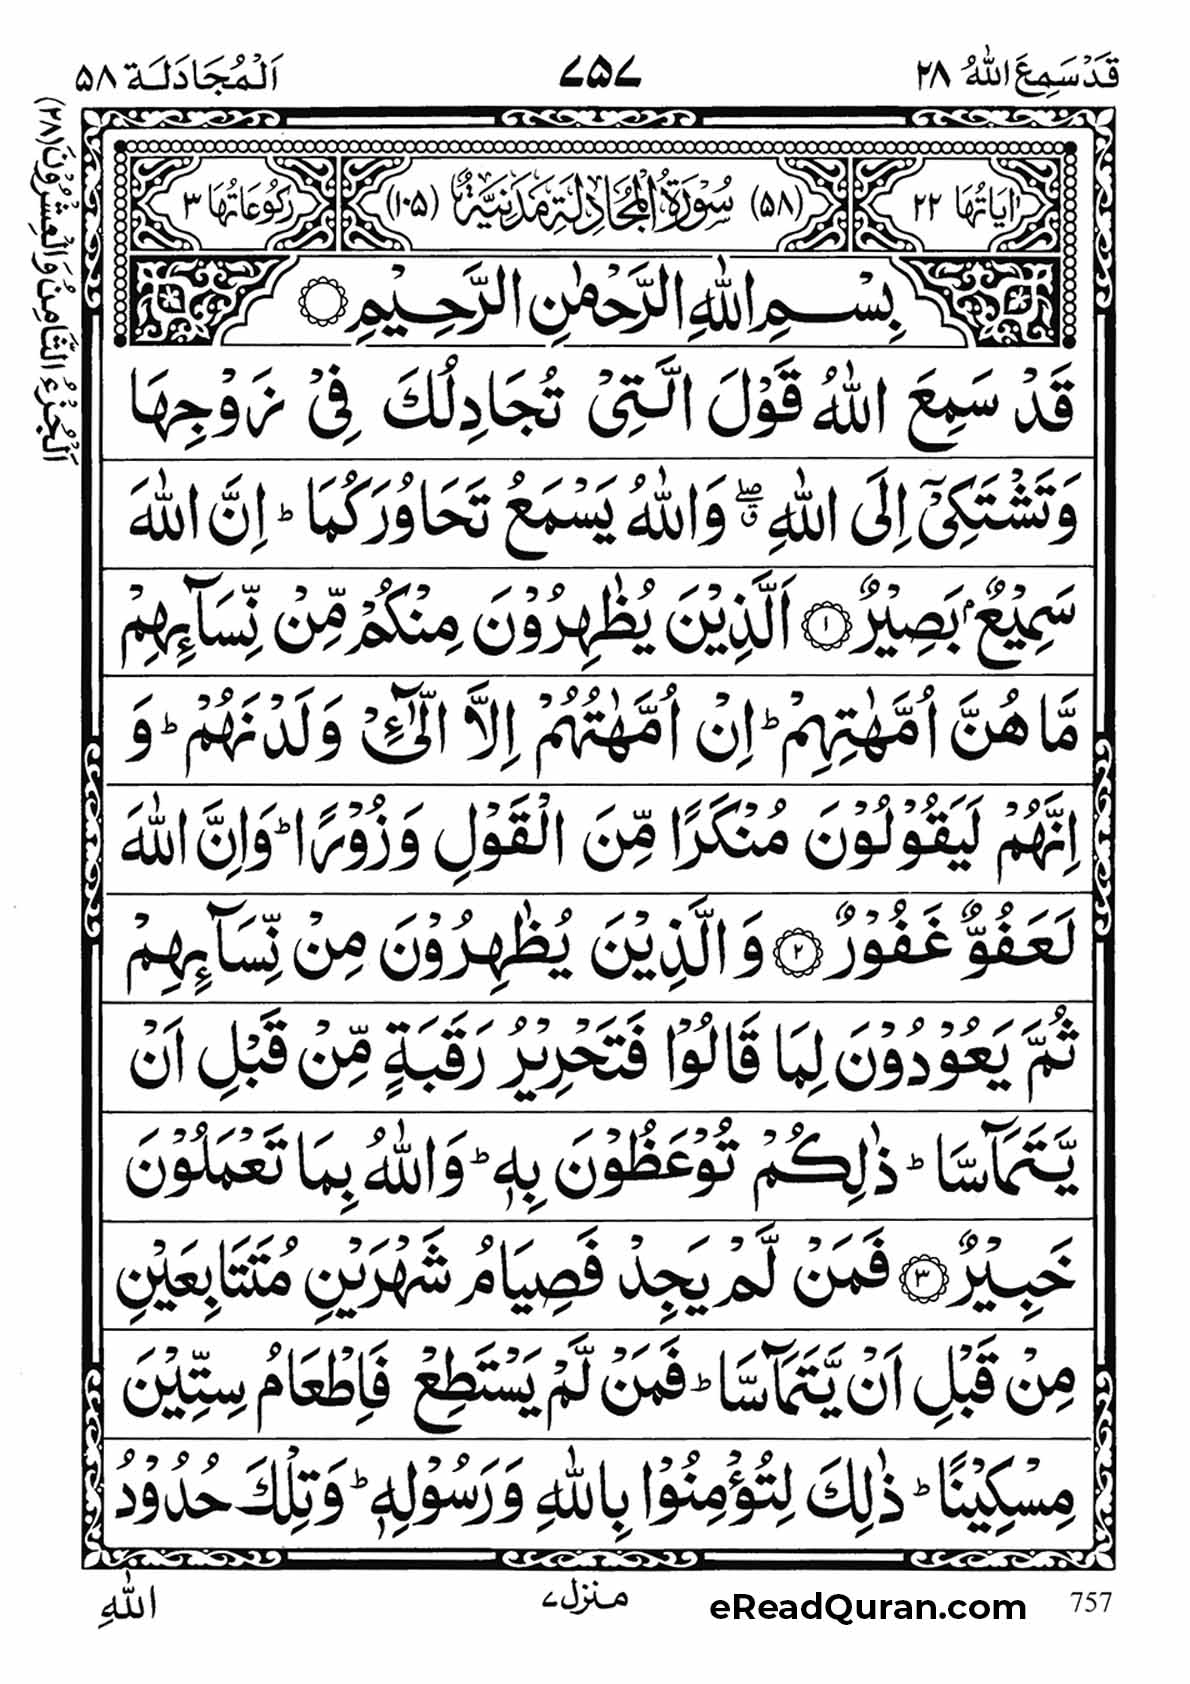 قَدْ سَمِعَ اللّٰهُ ٢٨
٧٥٧
اَلْمُجَادَلَة ٥٨
اَلْجُزْءُ الثَّامِنُ وَالْعِشْرُوْنَ (٢٨)
اٰيَاتُهَا ٢٢
(٥٨) سُوْرَةُ الْمُجَادِلَةِ مَدَنِيَّةٌ (١٠٥)
رَكُوْعَاتُهَا ٣
بِسْمِ اللّٰهِ الرَّحْمٰنِ الرَّحِيْمِ
قَدْ سَمِعَ اللّٰهُ قَوْلَ الَّتِيْ تُجَادِلُكَ فِيْ زَوْجِهَا
وَتَشْتَكِيْٓ اِلَى اللّٰهِ ۖق وَاللّٰهُ يَسْمَعُ تَحَاوُرَكُمَا ؕ اِنَّ اللّٰهَ
سَمِيْعٌۢ بَصِيْرٌ ١ اَلَّذِيْنَ يُظٰهِرُوْنَ مِنْكُمْ مِّنْ نِّسَآىِٕهِمْ
مَّا هُنَّ اُمَّهٰتِهِمْ ؕ اِنْ اُمَّهٰتُهُمْ اِلَّا الّٰٓـِٔيْ وَلَدْنَهُمْ ؕ وَ
اِنَّهُمْ لَيَقُوْلُوْنَ مُنْكَرًا مِّنَ الْقَوْلِ وَزُوْرًا ؕ وَاِنَّ اللّٰهَ
لَعَفُوٌّ غَفُوْرٌ ٢ وَالَّذِيْنَ يُظٰهِرُوْنَ مِنْ نِّسَآىِٕهِمْ
ثُمَّ يَعُوْدُوْنَ لِمَا قَالُوْا فَتَحْرِيْرُ رَقَبَةٍ مِّنْ قَبْلِ اَنْ
يَّتَمَآسَّا ؕ ذٰلِكُمْ تُوْعَظُوْنَ بِهٖ ؕ وَاللّٰهُ بِمَا تَعْمَلُوْنَ
خَبِيْرٌ ٣ فَمَنْ لَّمْ يَجِدْ فَصِيَامُ شَهْرَيْنِ مُتَتَابِعَيْنِ
مِنْ قَبْلِ اَنْ يَّتَمَآسَّا ؕ فَمَنْ لَّمْ يَسْتَطِعْ فَاِطْعَامُ سِتِّيْنَ
مِسْكِيْنًا ؕ ذٰلِكَ لِتُؤْمِنُوْا بِاللّٰهِ وَرَسُوْلِهٖ ؕ وَتِلْكَ حُدُوْدُ
اللّٰهِ
منزل ٧
eReadQuran.com
757